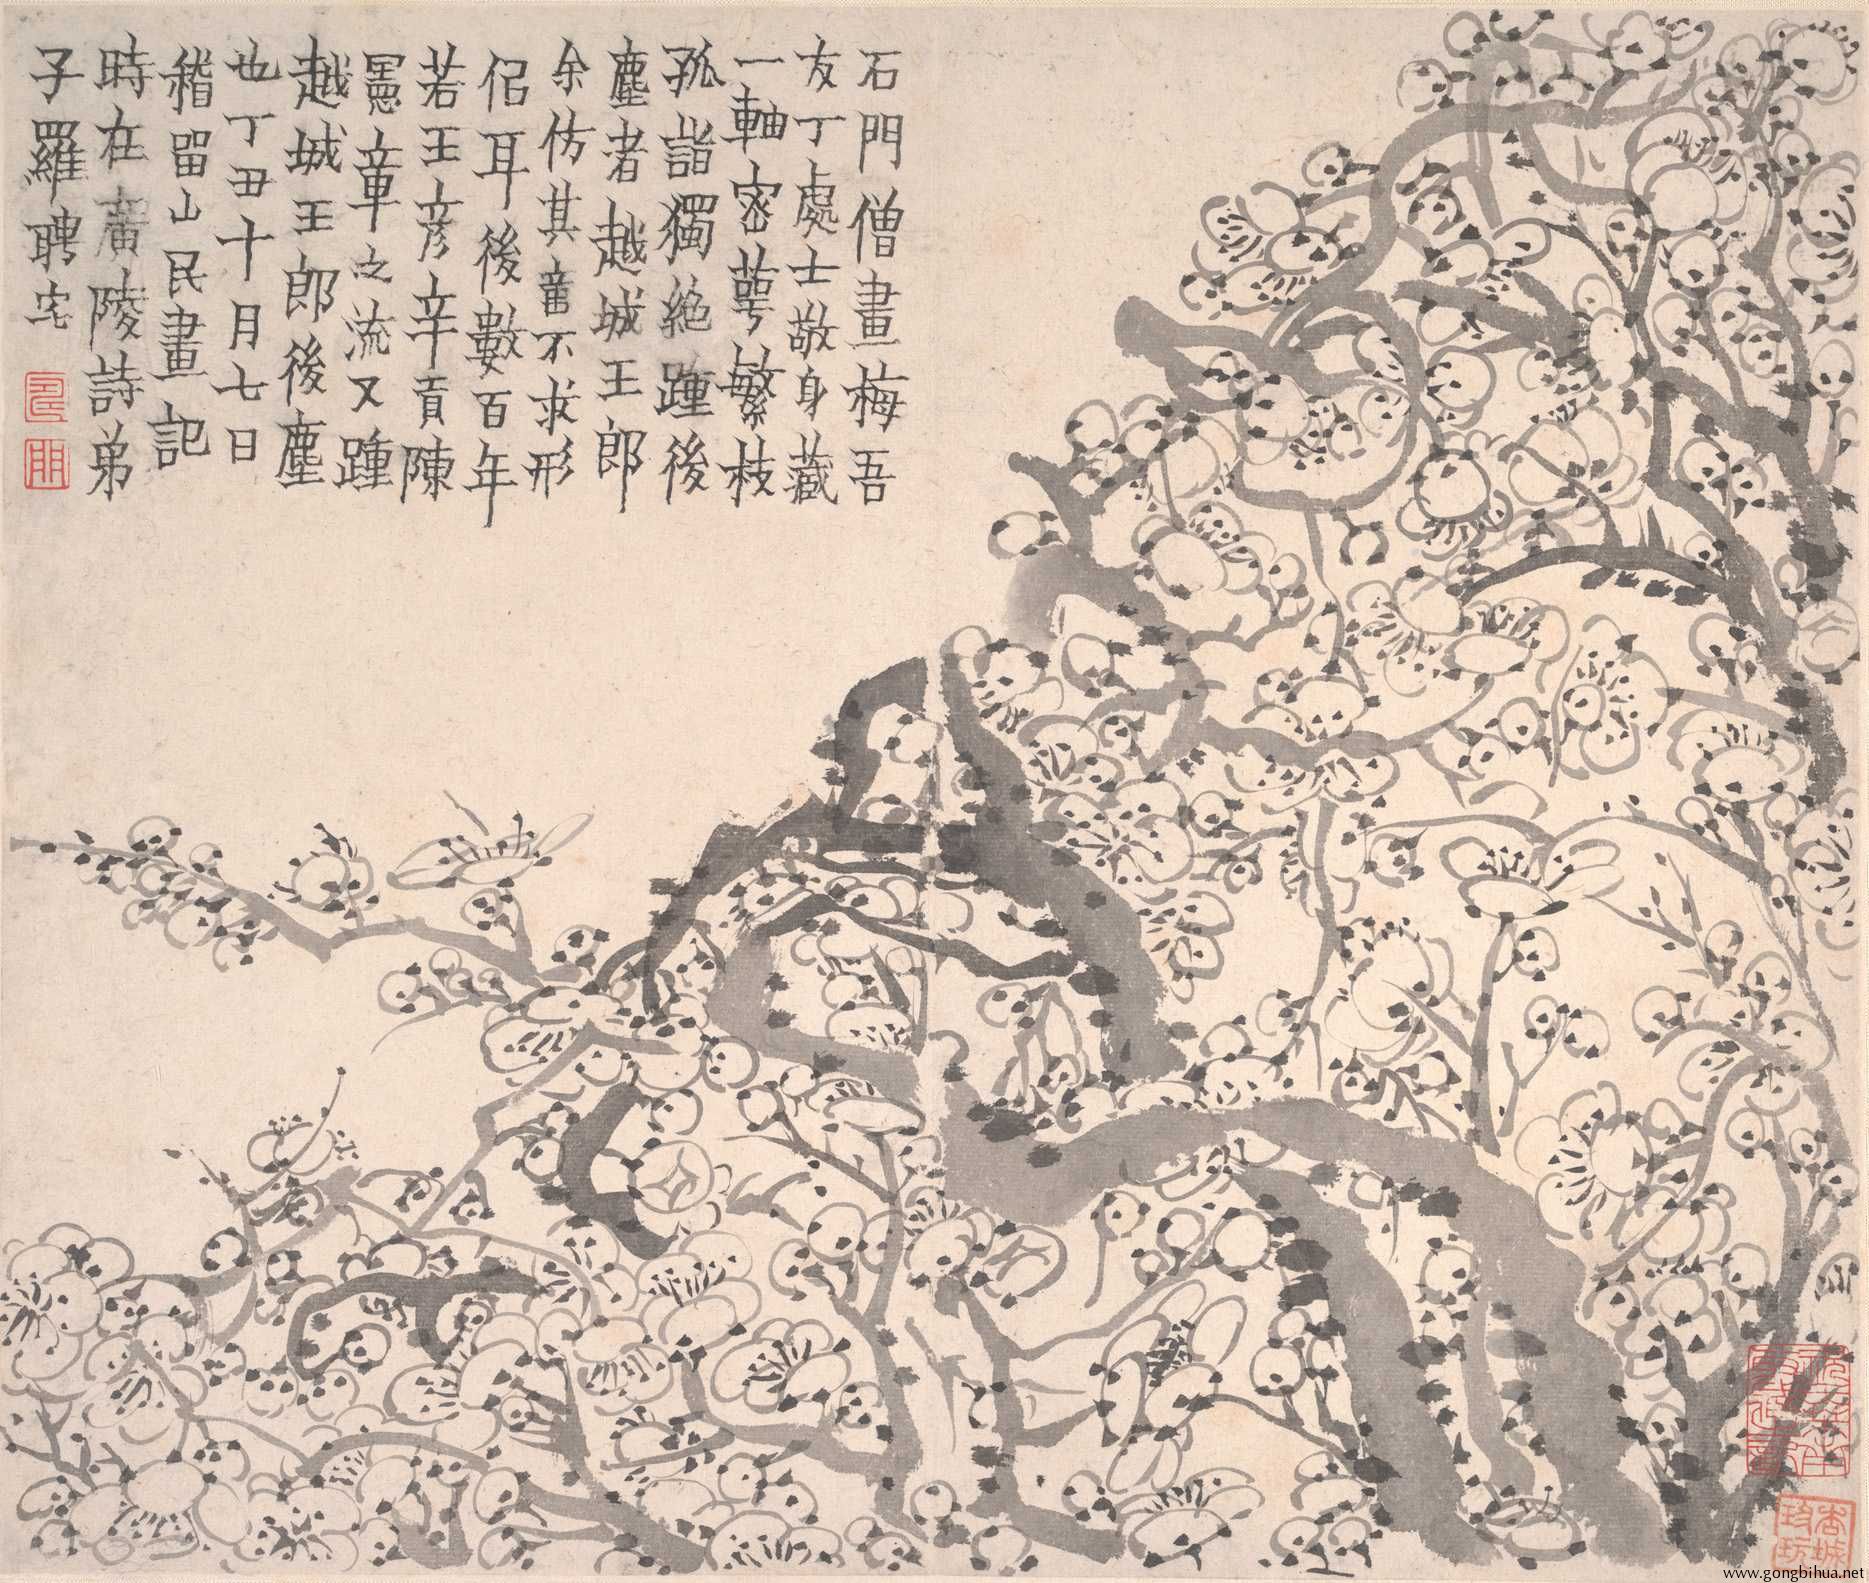 石門僧畫梅吾
友丁處士敬身藏
一軸密萼繁枝
孤詣獨絕踵後
塵者越城王郎
余仿其舊不求形
侣耳後數百年
若王彥辛貢陳
憲章之流又踵
越城王郎後塵
也丁丑十月七日
稽留山民畫記
時在廣陵詩弟
子羅聘宅
www.gongbihua.net